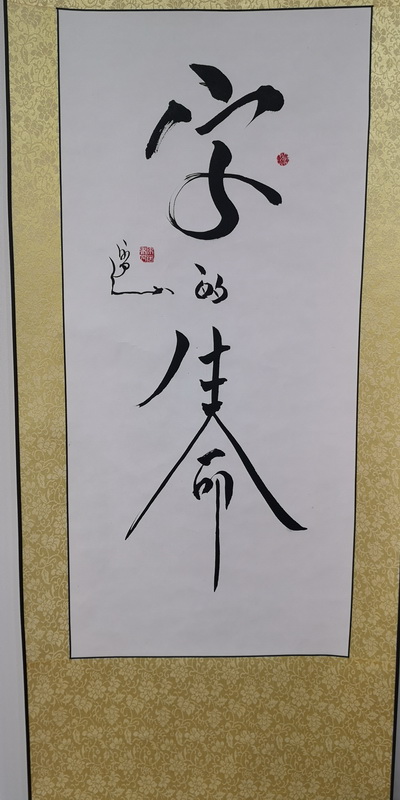 字的生命